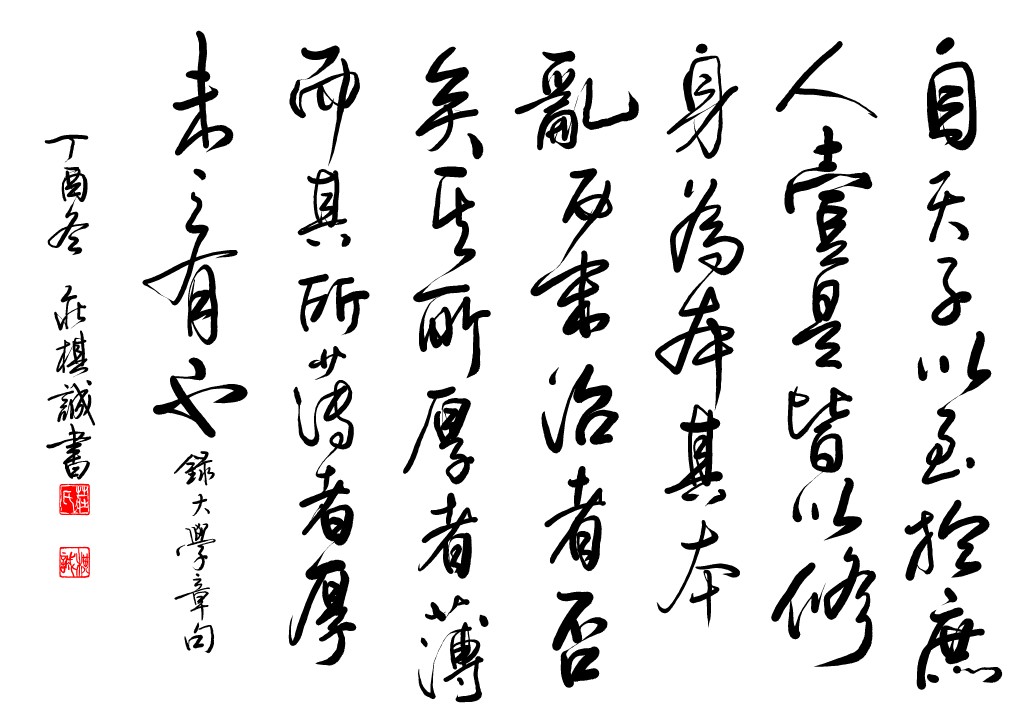 自天子以至於庶
人壹是皆以修
身為本其本
亂而末治者否
矣其所厚者薄
而其所薄者厚
未之有也
錄大學章句
丁酉冬 莊棋誠書
莊氏
棋誠